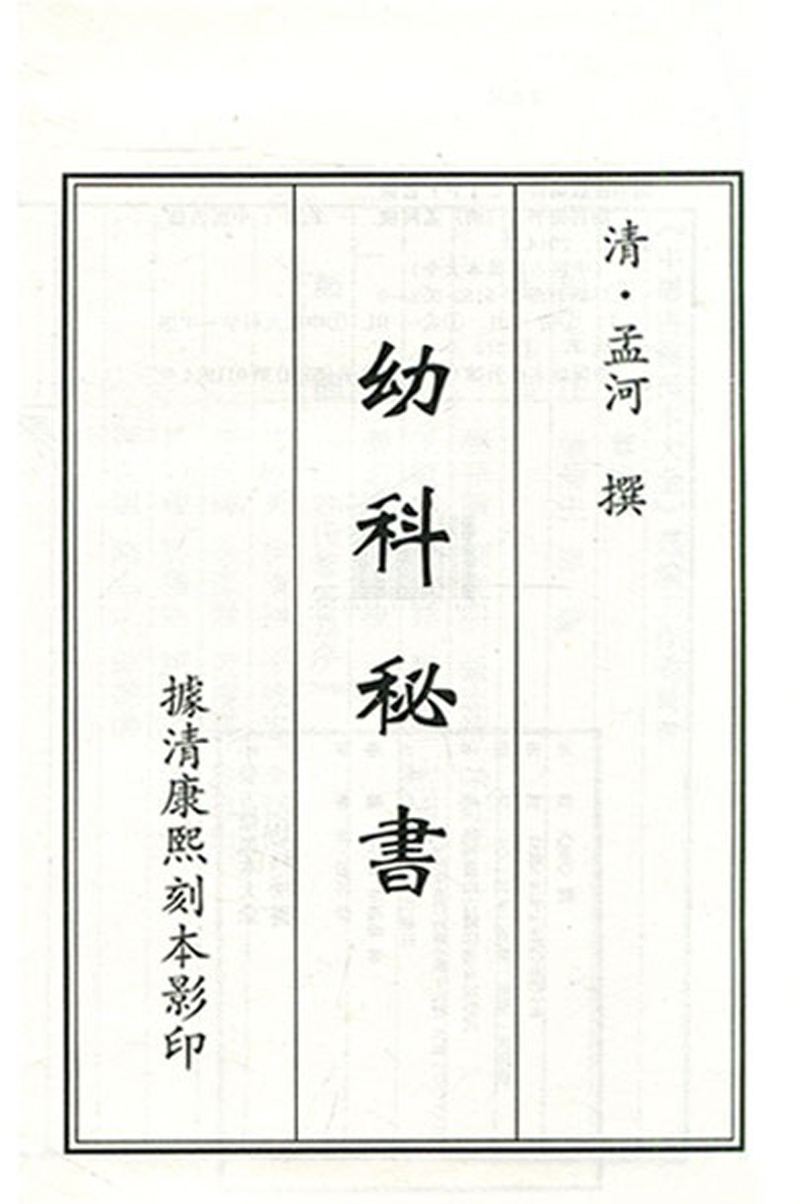 清·孟河 撰
幼科秘書
據清康熙刻本影印